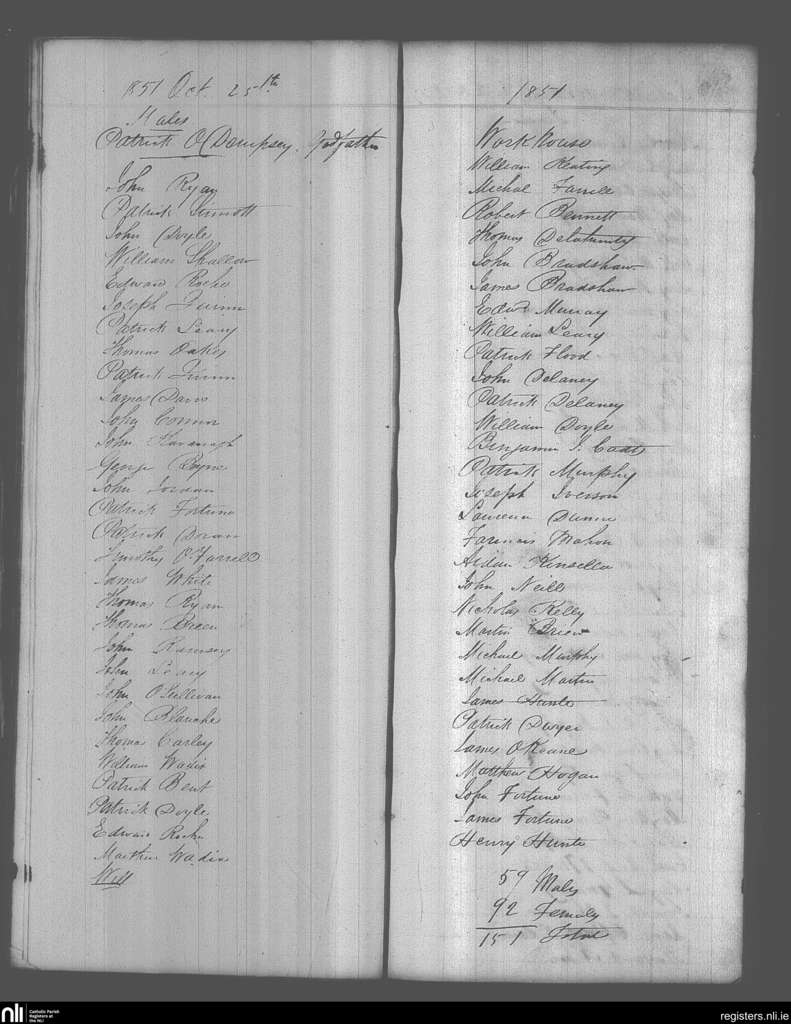 1851 Oct. 25th
Males
Patrick O'Dempsey. Godfather
John Ryan
Patrick Sinnott
John Doyle
William Shallow
Edward Roche
Joseph Quinn
Patrick Leary
Thomas Oakes
Patrick Quinn
James Davis
John Connor
John Kavanagh
George Byrne
John Jordan
Patrick Fortune
Patrick Doran
Timothy O'Farrell
James White
Thomas Ryan
Thomas Breen
John Ramsey
John Leary
John O'Sullivan
John Blanche
Thomas Carley
William Wadin
Patrick Bent
Patrick Doyle
Edward Roche
Matthew Wadin
Will
1851
Work House
William Keating
Michal Farrell
Robert Bennett
Thomas Delahunty
John Bradshaw
James Bradshaw
Edwd Murray
William Leary
Patrick Flood
John Delaney
Patrick Delaney
William Doyle
Benjamin J.
Patrick Murphy
Joseph Iverson
Laurence Dunne
Farrincis Mahon
Aidan Kinsella
John Neill
Nicholas Kelly
Martin Brien
Michael Murphy
Michael Martin
James Hunte
Patrick Dwyer
James O'Keane
Matthew Hogan
John Fortune
James Fortune
Henry Hunte
59 Males
92 Females
151 Total
nli Catholic Parish Registers at the NLI
registers.nli.ie